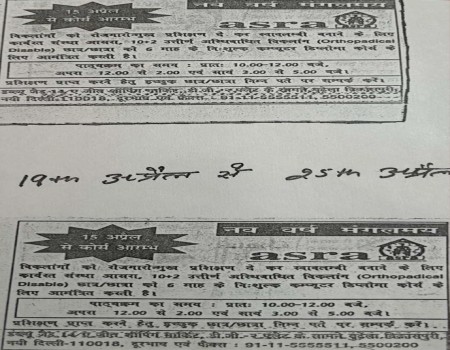 15 अप्रेल
से कोर्स आरम्भ
नव वर्ष मंगलमय
asra
विकलांगों को रोजगारोन्मुख प्रशिक्षण दे कर स्वावलम्बी बनाने के लिए
कार्यरत संस्था आसरा, 10+2 उत्तीर्ण अस्थिबाधित विकलांग (Orthopadical
Disable) छात्र/छात्रा को 6 माह के निःशुल्क कम्प्यूटर डिप्लोमा कोर्स के
लिए आमंत्रित करती है।
पाठ्यक्रम का समय : प्रातः 10.00-12.00 बजे,
अथवा 12.00 से 2.00 एवं सायं 3.00 से 5.00 बजे।
प्रशिक्षण प्राप्त करने हेतु इच्छुक छात्र/छात्रा निम्न पते पर सम्पर्क करें।
नयी दिल्ली-110018, दूरभाष एवं फैक्स : 91-11-5555511, 5500200
19th अप्रैल से 25th अप्रैल
15 अप्रेल
से कोर्स आरम्भ
नव वर्ष मंगलमय
asra
विकलांगों को रोजगारोन्मुख प्रशिक्षण दे कर स्वावलम्बी बनाने के लिए
कार्यरत संस्था आसरा, 10+2 उत्तीर्ण अस्थिबाधित विकलांग (Orthopadical
Disable) छात्र/छात्रा को 6 माह के निःशुल्क कम्प्यूटर डिप्लोमा कोर्स के
लिए आमंत्रित करती है।
पाठ्यक्रम का समय : प्रातः 10.00-12.00 बजे,
अथवा 12.00 से 2.00 एवं सायं 3.00 से 5.00 बजे।
प्रशिक्षण प्राप्त करने हेतु इच्छुक छात्र/छात्रा निम्न पते पर सम्पर्क करें।
नयी दिल्ली-110018, दूरभाष एवं फैक्स : 91-11-5555511, 5500200